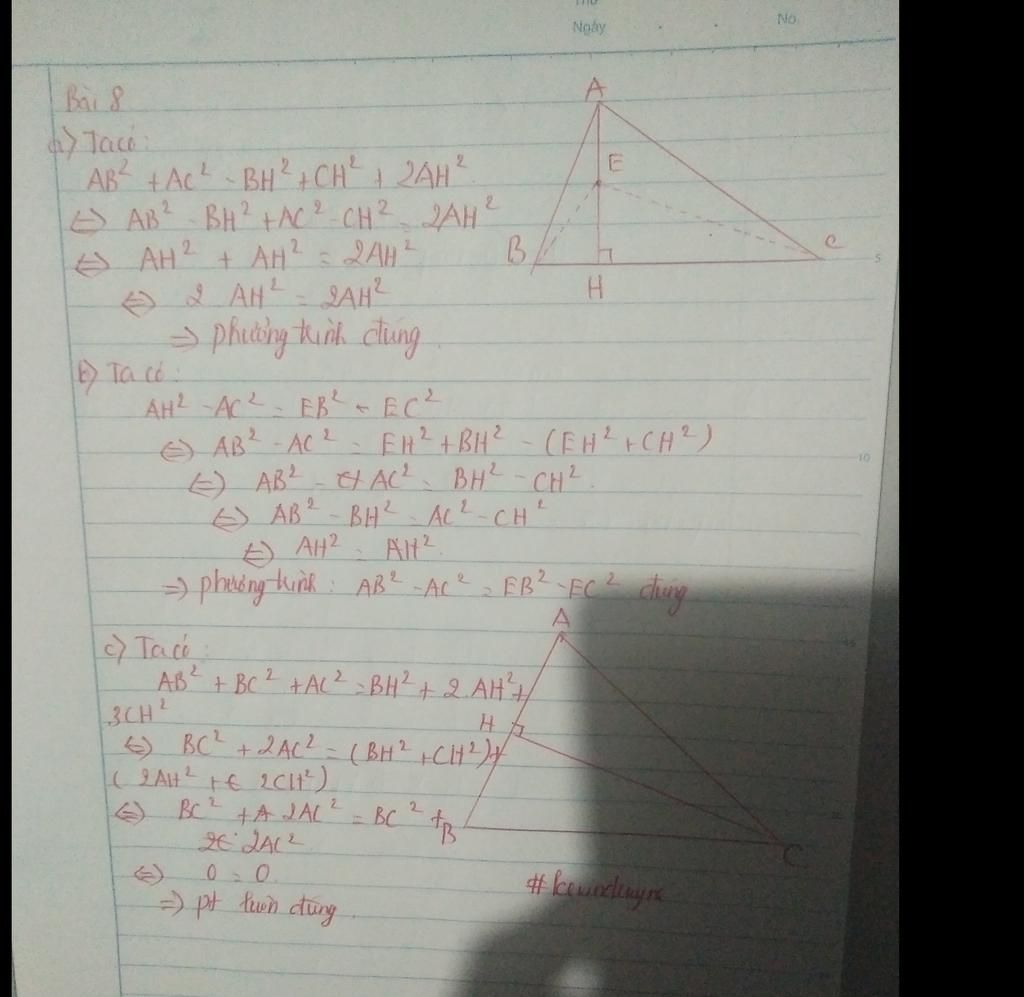 Thứ
Ngày . . No.
Bài 8
a) Ta có:
AB² + AC² - BH² + CH² + 2AH²
⇔ AB² - BH² + AC² - CH² = 2AH²
⇔ AH² + AH² = 2AH²
⇔ 2 AH² = 2AH²
⇒ phương trình đúng.
A
E
B
C
H
5
b) Ta có:
AH² - AC² = EB² - EC²
⇔ AB² - AC² = EH² + BH² - (EH² + CH²)
10
⇔ AB² - AC² = BH² - CH².
⇔ AB² - BH² = AC² - CH²
⇔ AH² = AH².
⇒ phương trình: AB² - AC² = EB² - EC² đúng
c) Ta có:
AB² + BC² + AC² = BH² + 2.AH² +
3CH²
⇔ BC² + 2AC² = (BH² + CH²) +
(2AH² + 2CH²)
⇔ BC² + 2AC² = BC² +
2AC²
⇔ 0 = 0
⇒ pt luôn đúng.
A
H
B
C